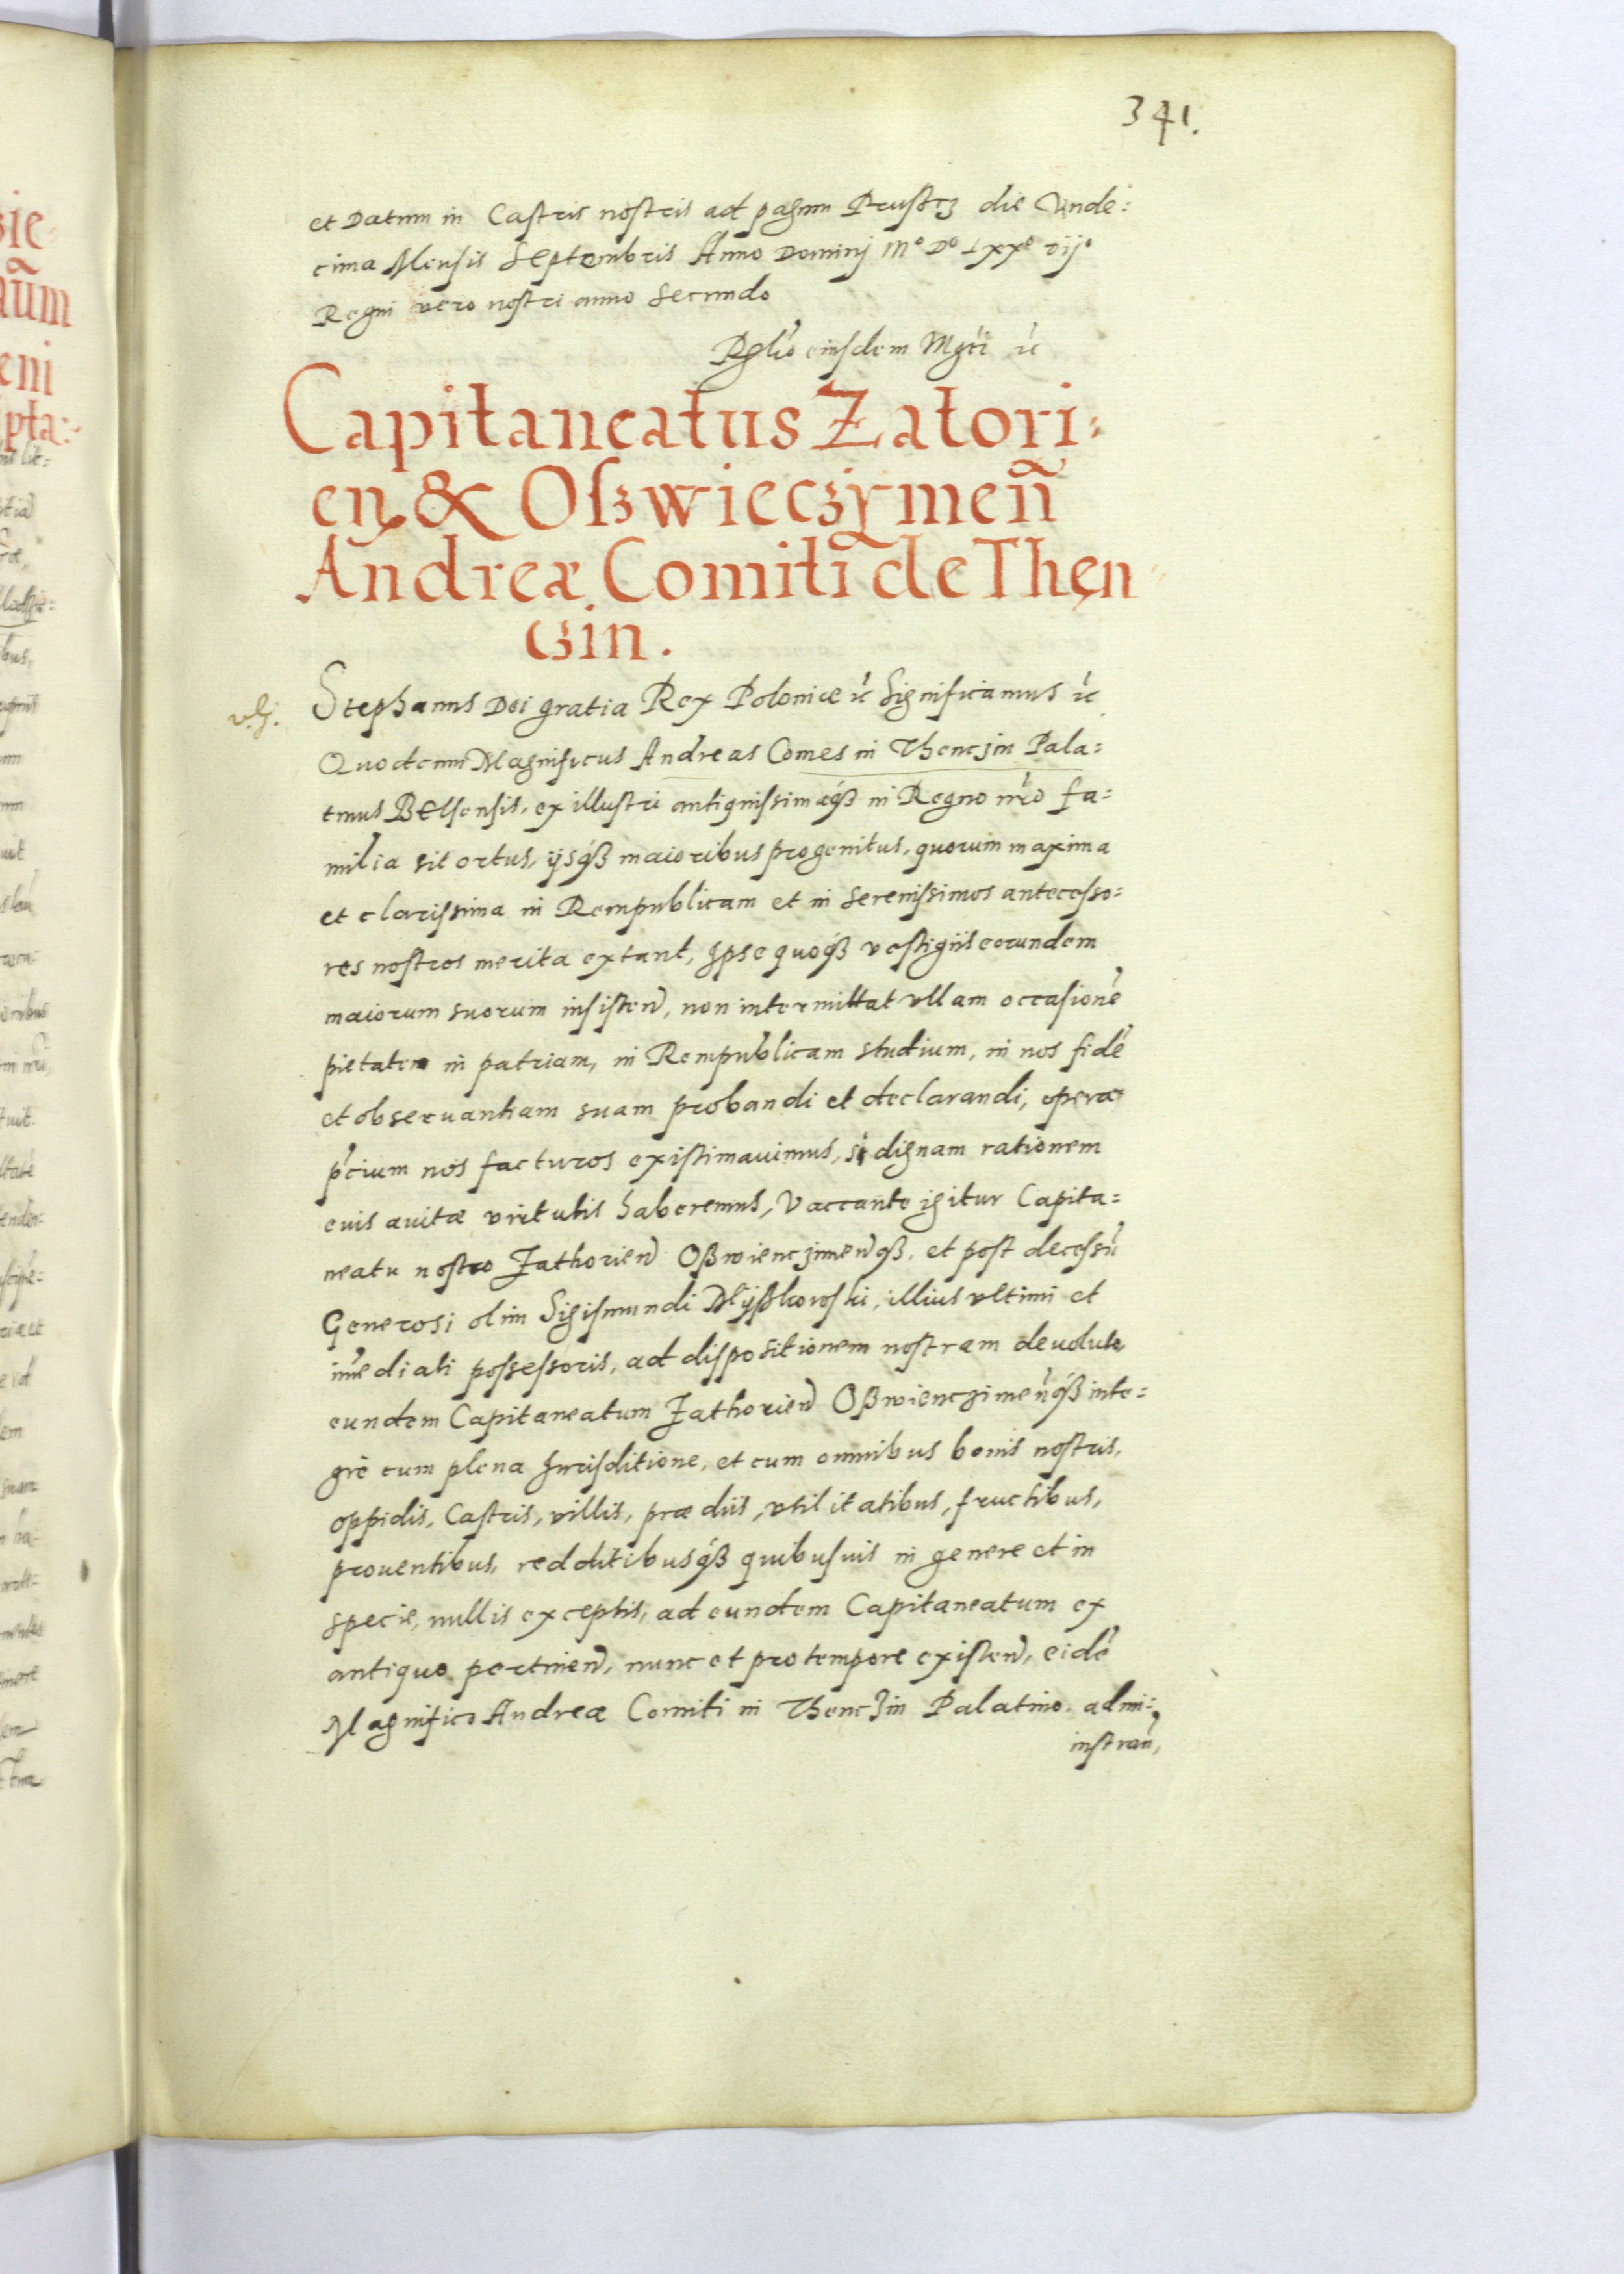 341.
et Datum in Castris nostris ad pagum Prustcz die Unde:
cima Mensis Septembris Anno Dominj Mº Dº LXXº vijº
Regni vero nostri anno Secundo
Rel'o eiusdem Mgci ic
Capitaneatus Zatori:
en̄ & Oszwieczymen̄
Andreæ Comiti de Thęn
Gin.
Stephanus Dei gratia Rex Poloniæ ic Significamus ic
Quod cum Magnificus Andreas Comes in Thenczin Pala=
tinus Belsensis, ex illustri antiquissimaq́ꝫ in Regno nr̃o fa=
milia sit ortus, ijsq́ꝫ maioribus progenitus, quorum maxima
et clarissima in Rempublicam et in Serenissimos antecesso=
res nostros merita extant, Ipse quoq́ꝫ vestigiis eorundem
maiorum suorum insisten̄, non intermittat vllam occasionē
pietatem in patriam, in Rempublicam studium, in nos fidē
et obseruantiam suam probandi et declarandi, operæ
p̄cium nos facturos existimauimus, si dignam rationem
euis auitæ virtutis haberemus, Vaccante igitur Capita=
neatu nostro Zathorien̄ Oßwienczimen̄q́ꝫ, et post decessū
Generosi olim Sigismundi Myßkowski, illius vltimi et
im̄ediati possessoris, ad dispositionem nostram deuoluto
eundem Capitaneatum Zathorien̄ Oßwienczimen̄q́ꝫ inte=
gre cum plena Jurisditione, et cum omnibus bonis nostris,
oppidis, Castris, villis, prædiis, vtilitatibus, fructibus,
prouentibus, redditibusq́ꝫ quibusuis in genere et in
specie, nullis exceptis, ad eundem Capitaneatum ex
antiquo pertinen̄, nunc et pro tempore existen̄, eidē
Magnifico Andreæ Comiti in Thenczin Palatino, admi:
nistran̄,